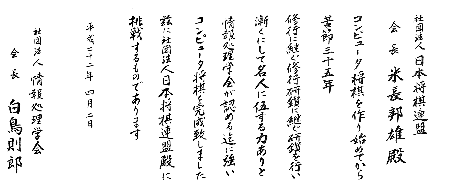 社団法人 日本将棋連盟
会長 米長邦雄殿
コンピュータ将棋を作り始めてから
苦節三十五年
修行に継ぐ修行 研鑽に継ぐ研鑽を行い
漸くにして名人に伍する力ありと
情報処理学会が認める迄に強い
コンピュータ将棋を完成致しました
茲に社団法人日本将棋連盟殿に
挑戦するものであります
平成二十二年 四月二日
社団法人 情報処理学会
会長 白鳥則郎